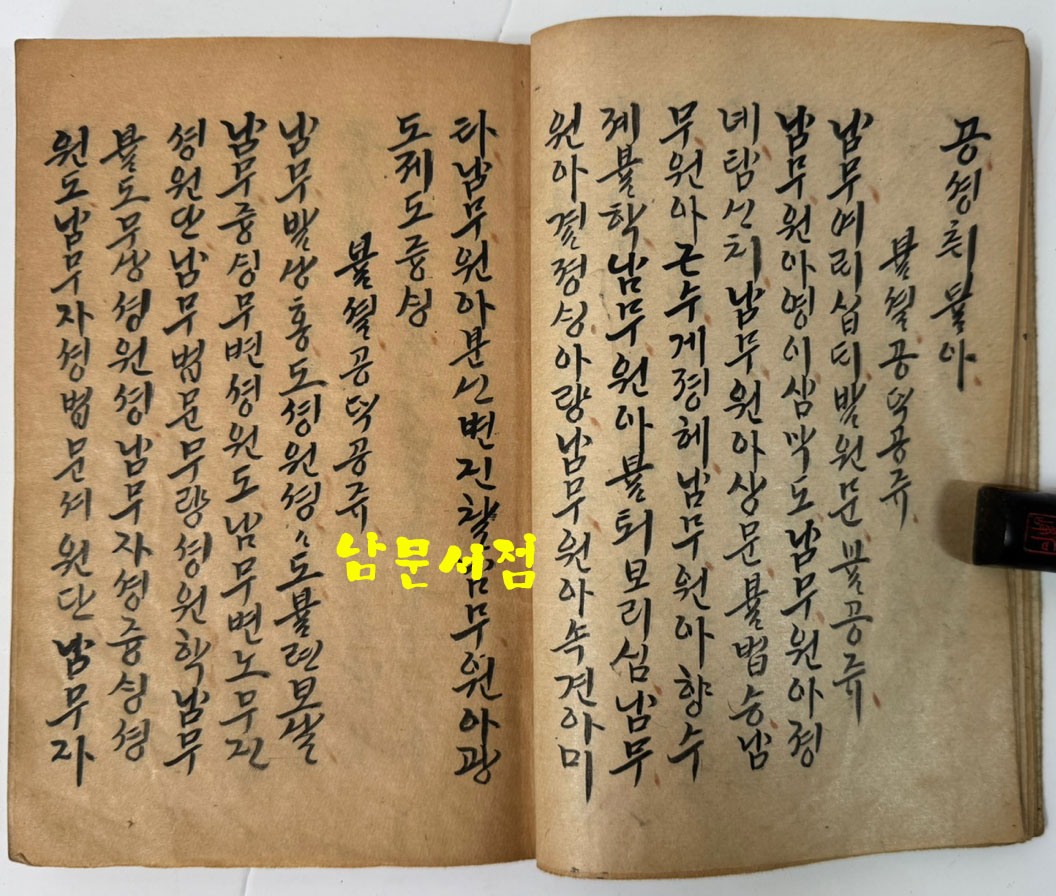 공셩취불아
불셜공덕공쥬
남무여리십디발원문불공쥬
남무원아영이삼막도남무원아졍
녜탐신치남무원아상문불법승남
무원아근수계졍헤남무원아향수
졔불학남무원아불퇴보리심남무
원아결졍싱아량남무원아속견아미
타남무원아분신변진찰남무원아광
도졔도즁싱
불셜공덕공쥬
남무발상홍도셩원셩〻도불련보살
남무즁싱무변셩원도남무변노무진
셩원단남무법문무량셩원학남무
불도무상셩원셩남무자셩즁싱셩
원도남무자셩법문셔원단남무자
남문서점